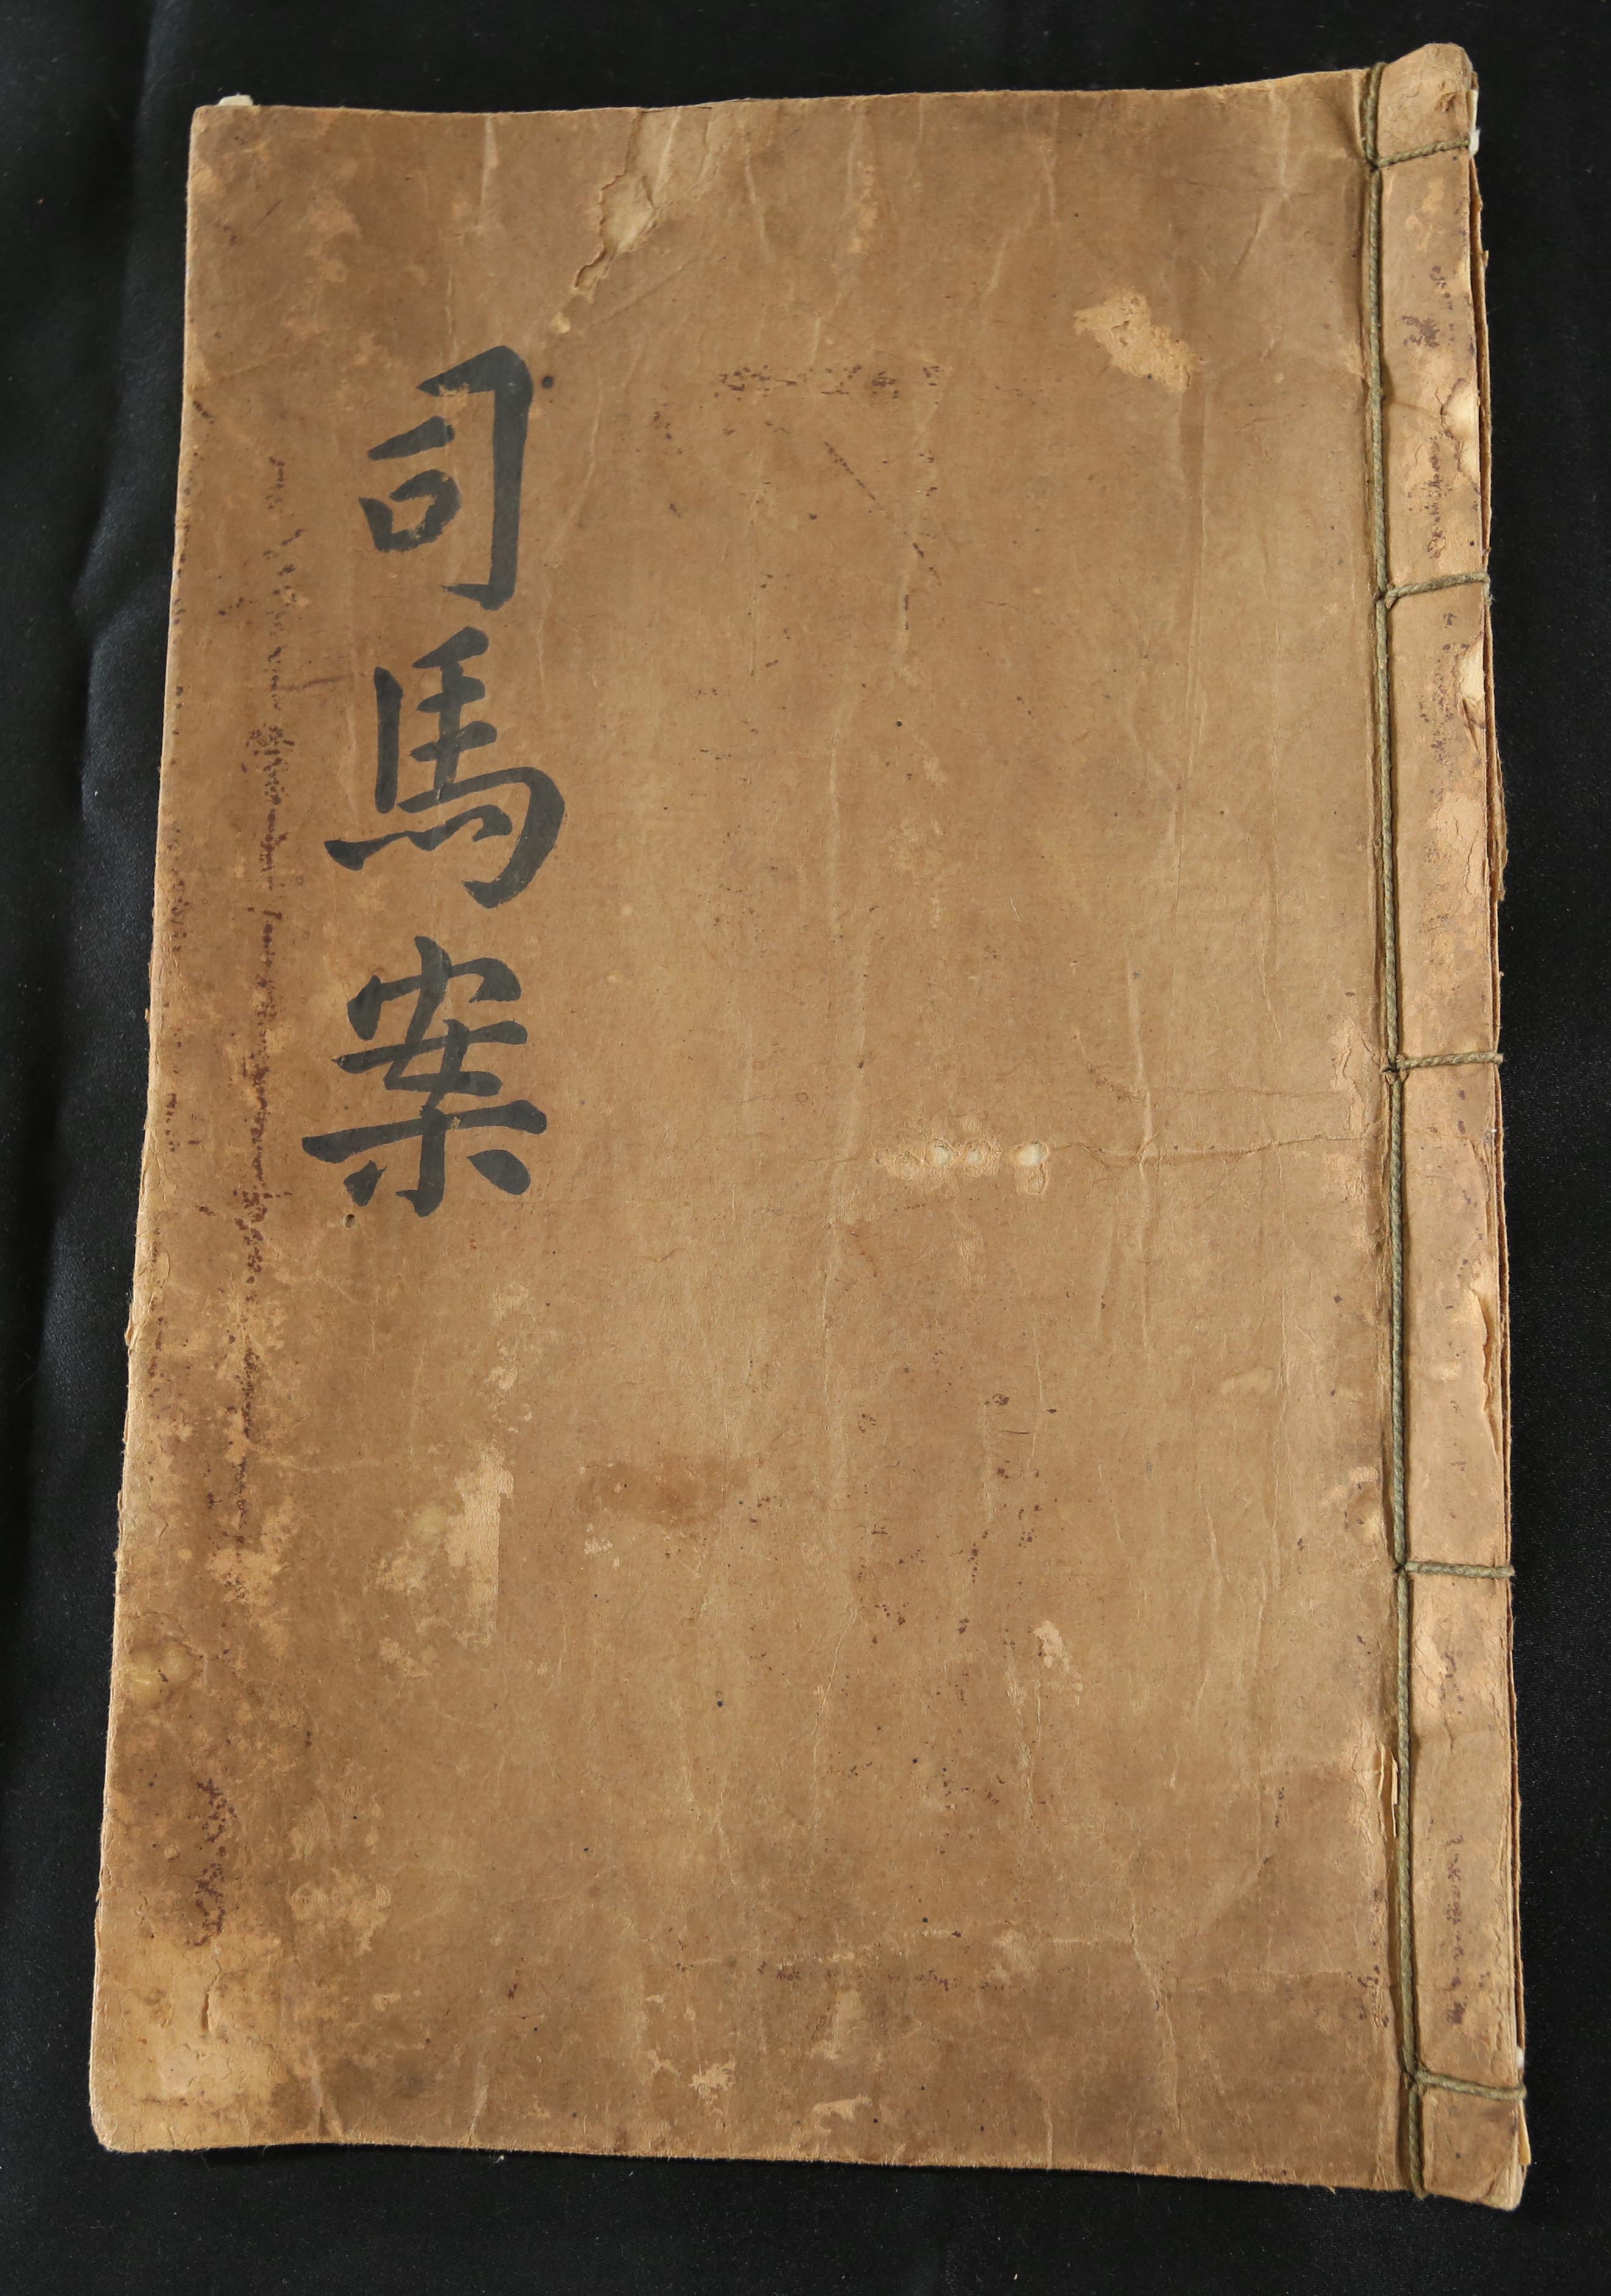 司馬案